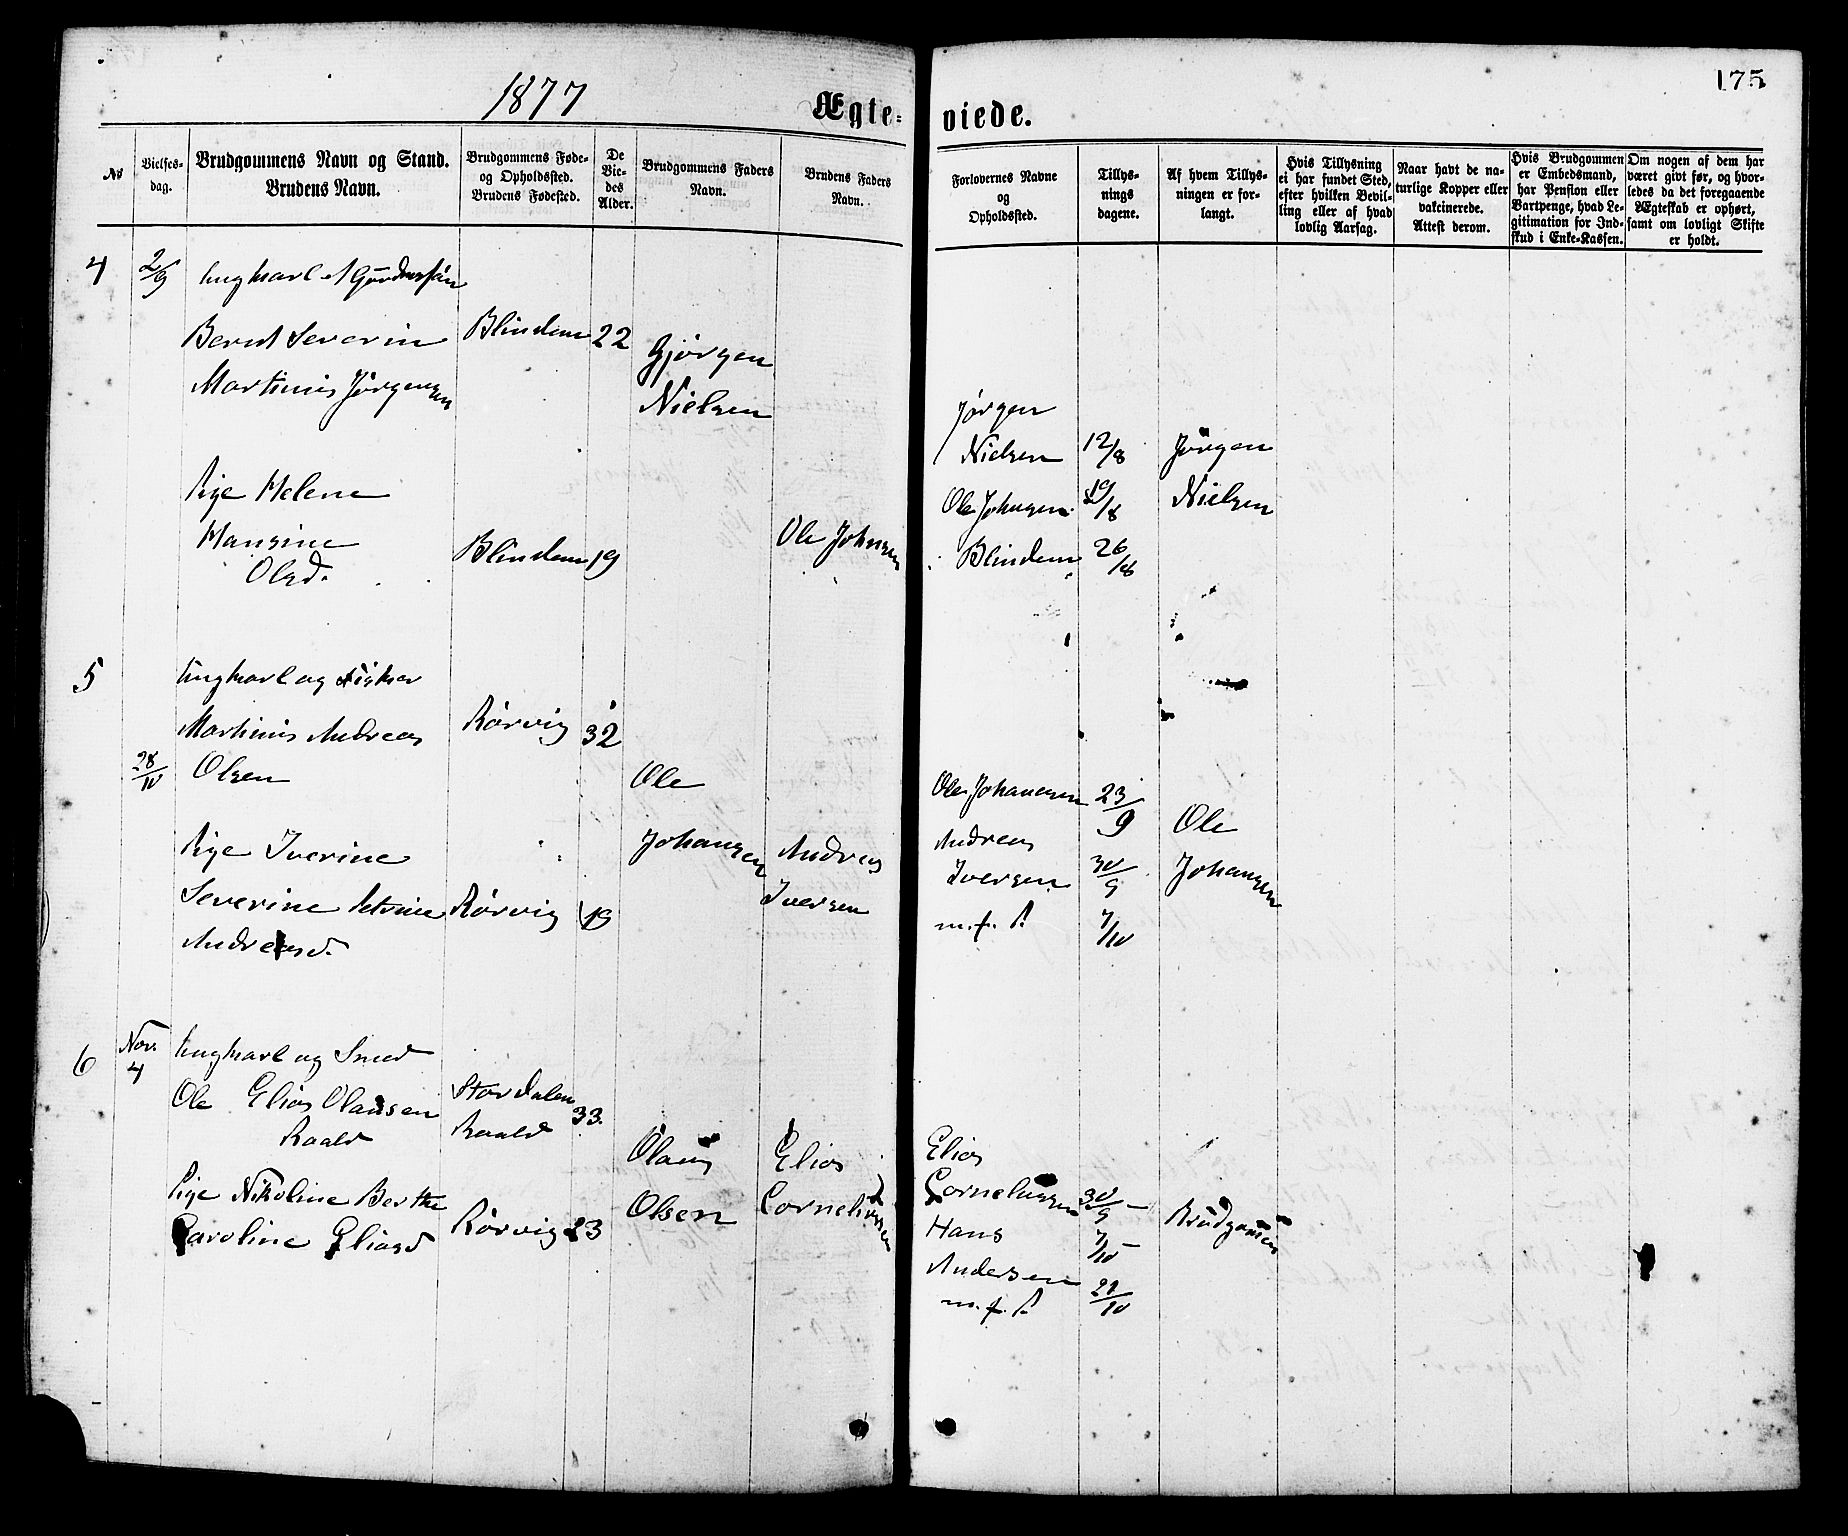 175
1877
Ægte-
viede.
No
Vielses-
dag.
Brudgommens Navn og Stand.
Brudens Navn.
Brudgommens Føde-
og Opholdssted.
Brudens Fødested.
De
Vie-
des
Alder.
Brudgommens Faders
Navn.
Brudens Faders
Navn.
Forlovernes Navne
og
Opholdssted.
Tillys-
nings
dagene.
Af hvem Tillys-
ningen er for-
langt.
Hvis Tillysning
ei har fundet Sted,
efter hvilken Bevil-
ling eller af hvad
lovlig Aarsag.
Naar havt de na-
turlige Kopper eller
vakcinerede.
Attest derom.
Hvis Brudgommen
er Embedsmand,
har Pension eller
Vartpenge, hvad Le-
gitimation for Ind-
skud i Enke-Kassen.
Om nogen af dem har
været givt før, og hvor-
ledes da det foregaaende
Ægteskab er ophørt,
samt om lovligt Skifte
er holdt.
4
2/9
Ungkarl
Bernt Severin
Martinus Jørgensen
Blindem
22
Gjørgen
Nielsen
Pige Helene
Hansine
Olsd.
Blindem
19
Ole Johnsen
Jørgen
Nielsen
Ole Johnsen
Blindem
12/8
19/8
26/8
Jørgen
Nielsen
5
28/10
Ungkarl og Fisker
Martinus Andreas
Olsen
Rørvig
32
Ole
Johansen
Pige Iverine
Severine Petrine
Andreasd.
Rørvig
19
Andreas
Iversen
Ole Johansen
Andreas
Iversen
m. f. P.
23/9
30/9
7/10
Ole
Johansen
6
Nov.
4
Ungkarl og Smed
Ole Elias Olausen
Raald
Stordalen
Raald
33.
Olaus
Olsen
Pige Nikoline Berthe
Caroline Eliasd
Rørvig
23
Elias
Corneliussen
Elias
Corneliussen
Hans
Andersen
m. f. P.
30/9
7/10
21/10
Brudgommen